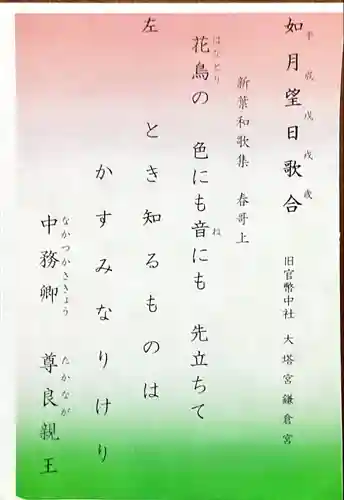 如月望日歌合 平成戊戌歳
旧官幣中社 大塔宮鎌倉宮
新葉和歌集 春哥上
左
花鳥の 色にも音にも 先立ちて
はなとり ね
とき知るものは
かすみなりけり
中務卿 尊良親王
なかつかさきょう たかなが